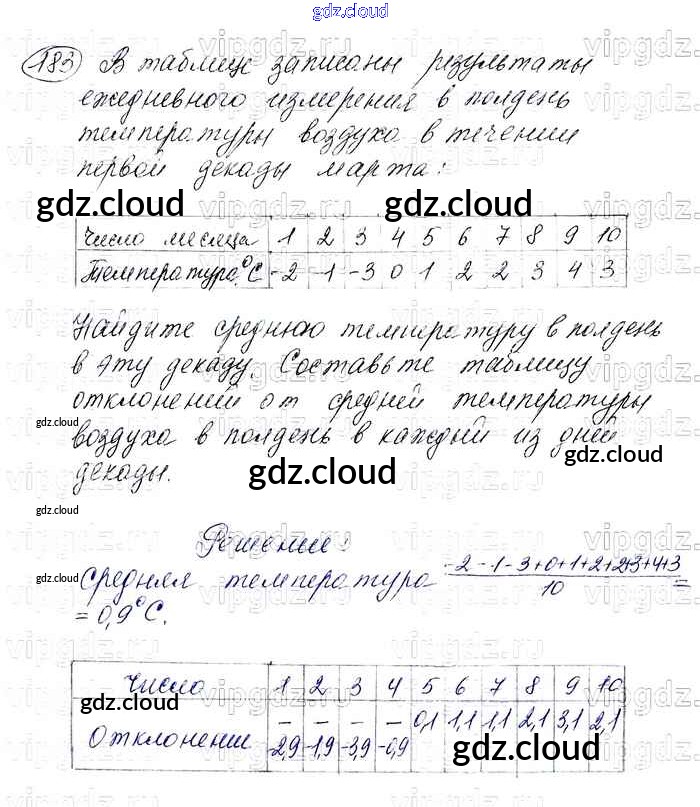 gdz.cloud
183 В таблице записаны результаты
ежедневного измерения в полдень
температуры воздуха в течении
первой декады марта:
gdz.cloud gdz.cloud
Число месяца 1 2 3 4 5 6 7 8 9 10
Температура °С -2 -1 -3 0 1 2 2 3 4 3
Найдите среднюю температуру в полдень
в эту декаду. Составьте таблицу
отклонений от средней температуры
gdz.cloud
воздуха в полдень в каждый из дней
gdz.cloud
декады.
gdz.cloud
gdz.cloud
Решение:
Средняя температура -2-1-3+0+1+2+2+3+4+3
10 =
gdz.cloud
= 0,9°С.
Число 1 2 3 4 5 6 7 8 9 10
gdz.cloud
Отклонение -2,9 -1,9 -3,9 -0,9 0,1 1,1 1,1 2,1 3,1 2,1
gdz.cloud